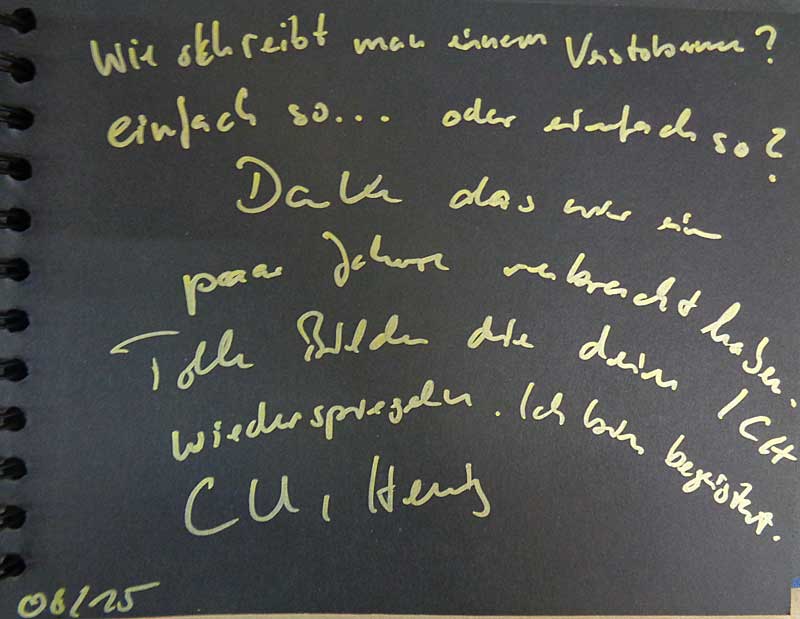 Wie schreibt man einem Verstorbenen?
einfach so... oder einfach so?
Danke das wir ein
paar Jahre verbracht haben.
Tolle Bilder die dein ICH
wiederspiegeln. Ich bin begeistert.
CU,
06/15